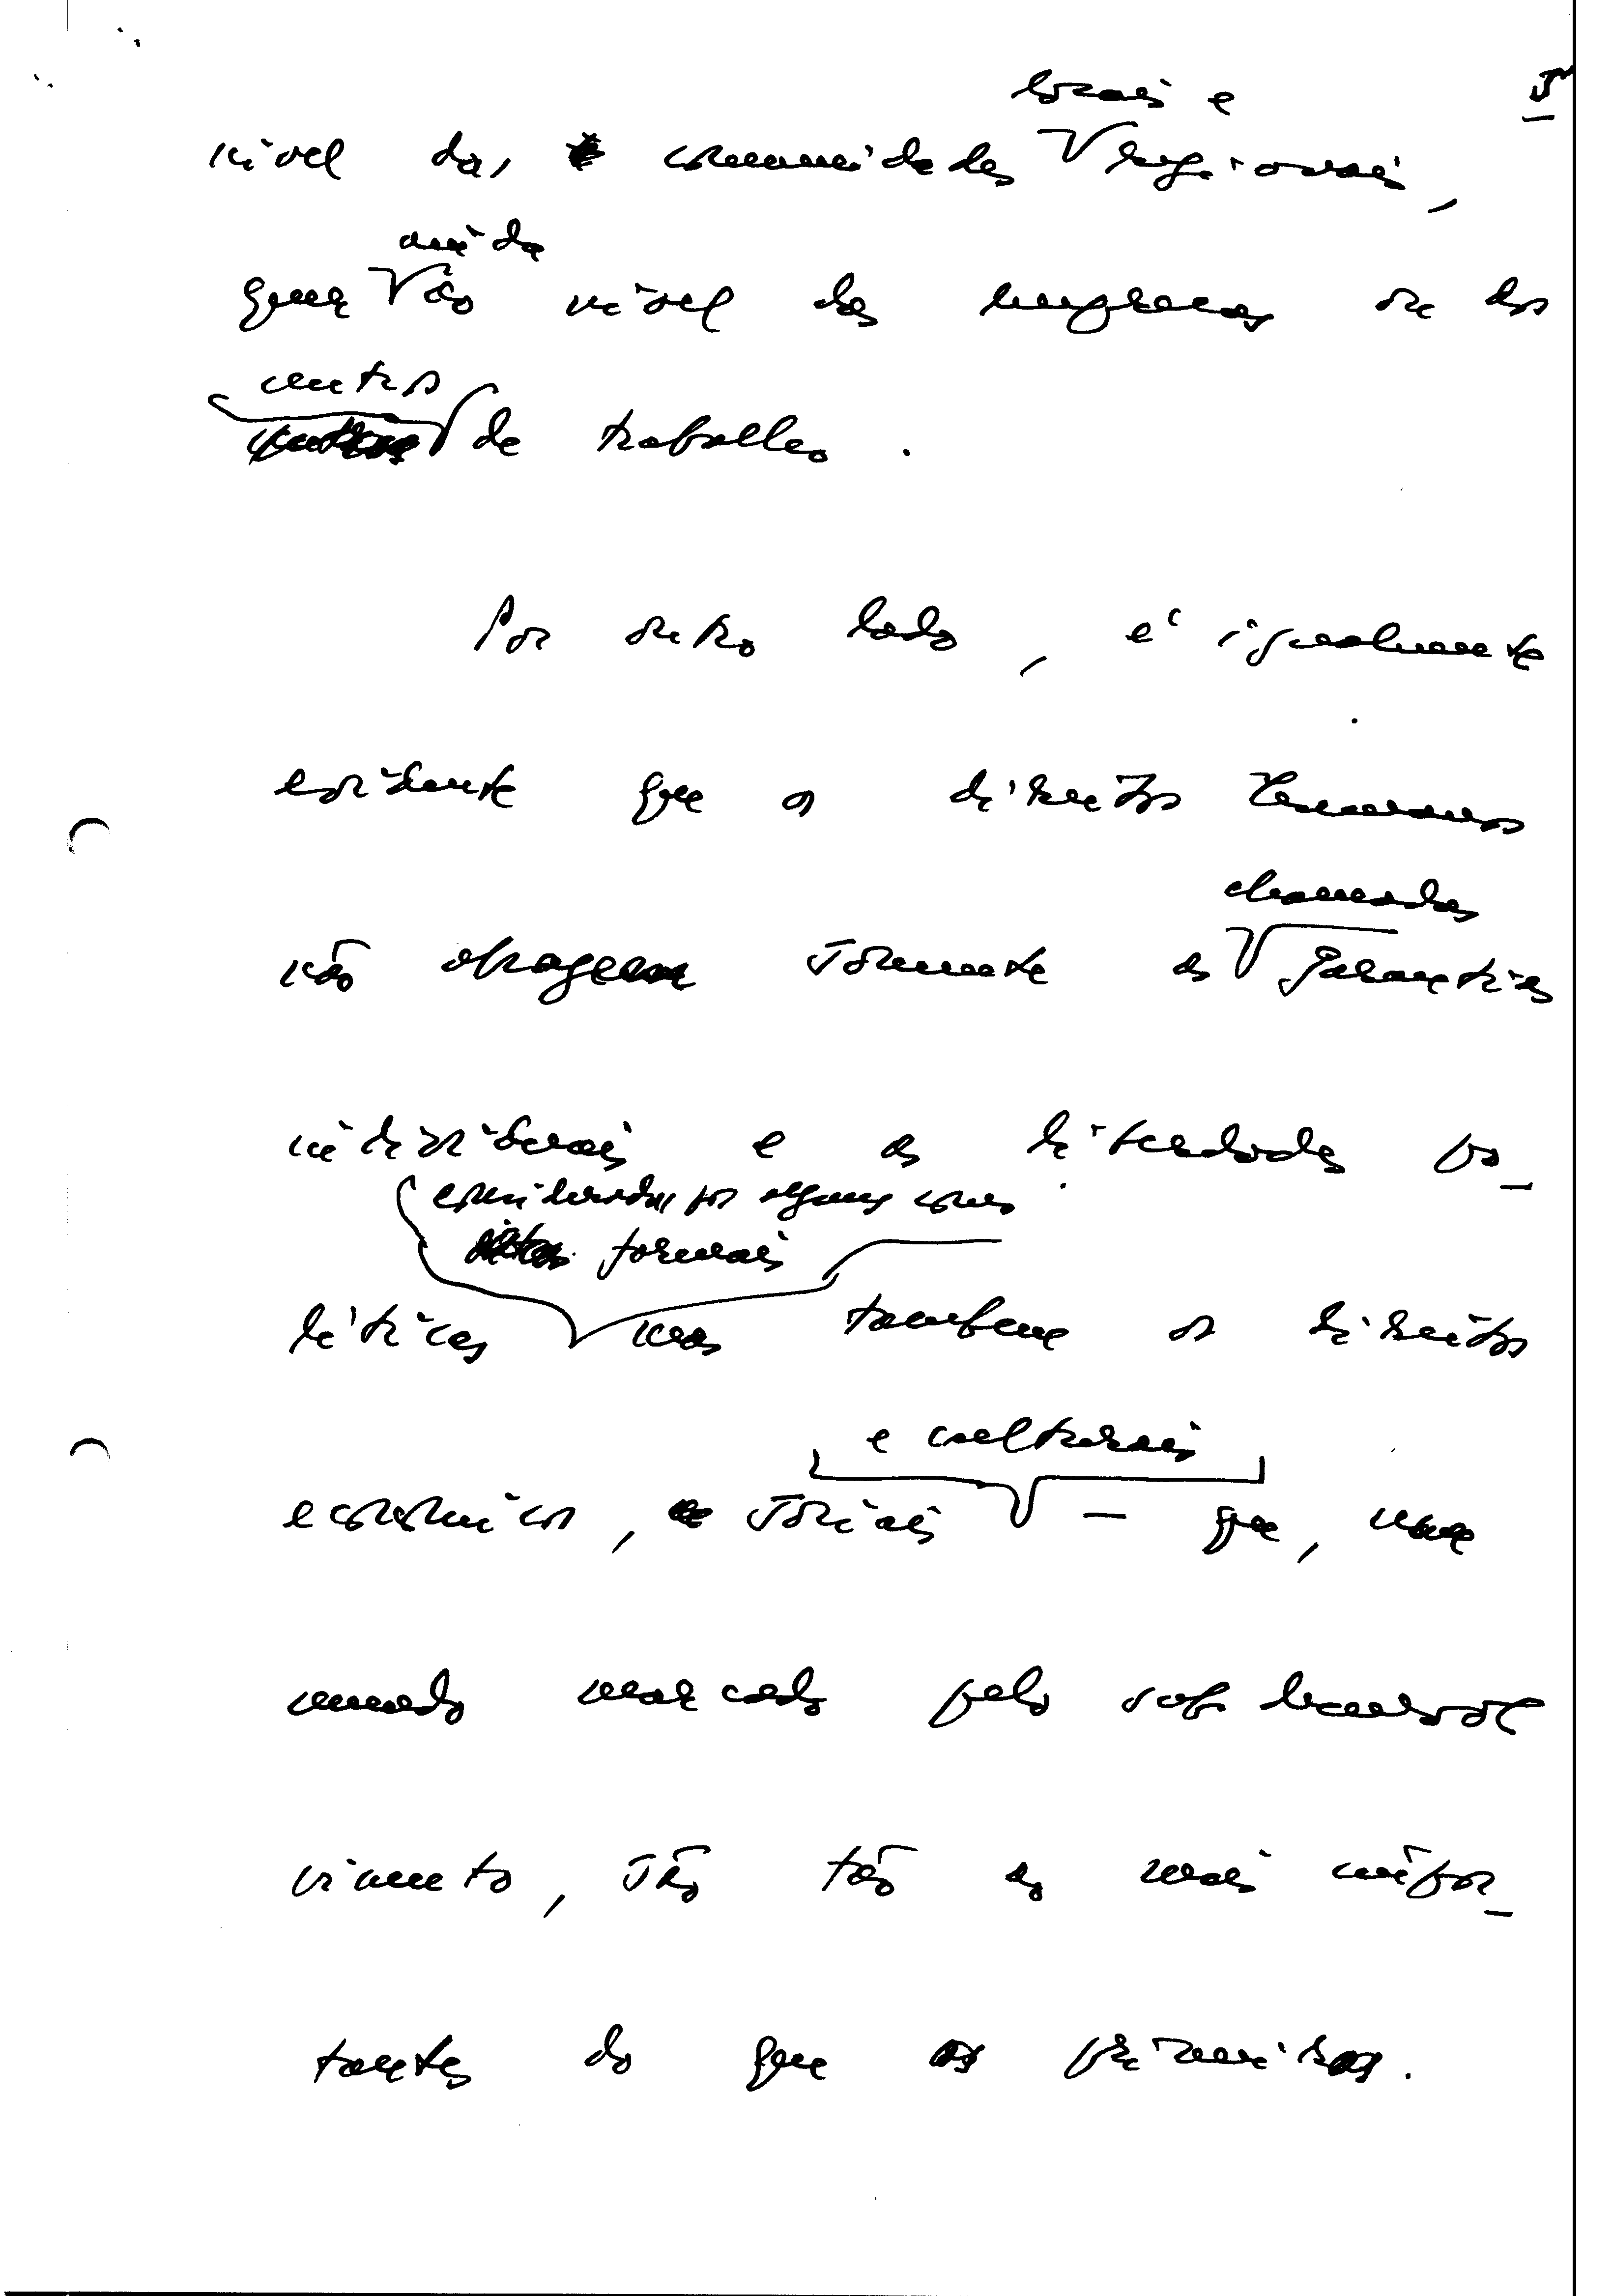 5
locais e
nível das comunidades regionais,
ainda
quer ao nível das empresas ou dos
centros
de trabalho.
Por outro lado, é igualmente
evidente que os direitos humanos
chamadas
não abrangem somente as garantias
individuais e as liberdades po-
consideradas por alguns como
formais
líticas mas também os direitos
e culturais
económicos, sociais - que, num
mundo marcado pelo subdesenvol
vimento, são tão ou mais impor-
tantes do que os primeiros.